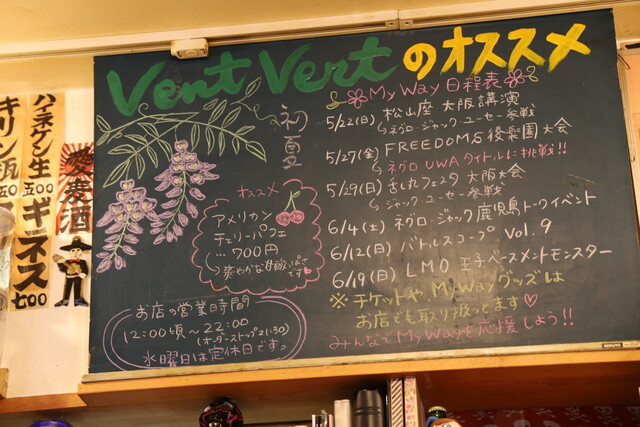 Vent Vertのオススメ
初夏
オススメ
アメリカン
チェリーパフェ
…700円
お店の営業時間
12:00頃〜22:00
(オーダーストップ21:30)
水曜日は定休日です。
MyWay日程表
5/22(日) 松山座 大阪講演
ネグロ・ジャック・ユーセー参戦
5/27(金) FREEDOMS後楽園大会
ネグロUWAタイトルに挑戦!!
5/29(日) 大阪大会
ジャック・ユーセー参戦
6/4(土) ネグロ・ジャック鹿児島トークイベント
6/12(日) バトルスコープ Vol.9
6/19(日) LMO 王子ベースメントモンスター
※チケットや、MyWayグッズは
お店でも取り扱ってます♡
みんなでMyWayを応援しよう!!
ハイネケン生
500
キリン瓶
550
ギネス
700
愛麦酒